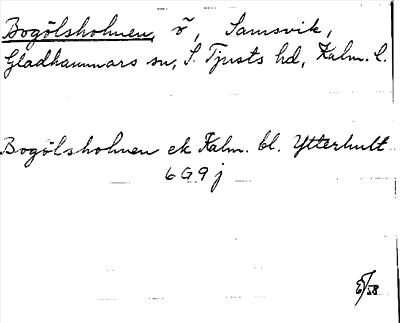 Bogölsholmen, ö, Samsvik,
Gladhammars sn, S. Tjusts hd, Kalm. l.
Bogölsholmen ek Kalm. bl. Ytterhult
6G9j